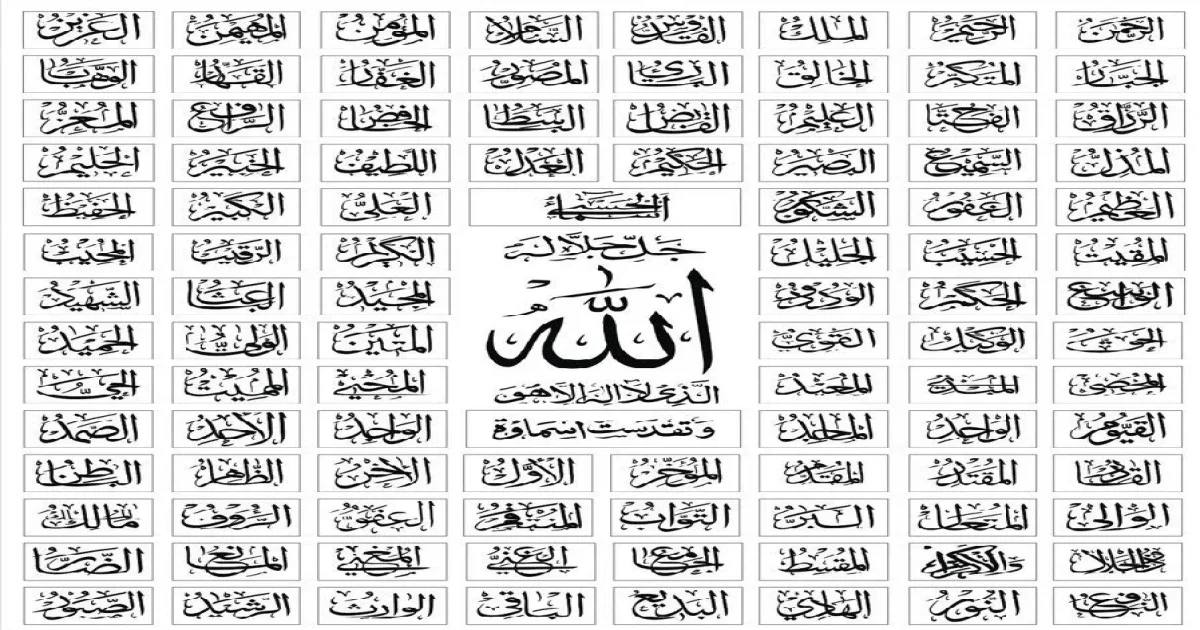 الرحمن الرحيم الملك القدوس السلام المؤمن المهيمن العزيز
الجبار المتكبر الخالق البارئ المصور الغفار القهار الوهاب
الرزاق الفتاح العليم القابض الباسط الخافض الرافع المعز
المذل السميع البصير الحكيم العدل اللطيف الخبير الحليم
العظيم الغفور الشكور العلي الكبير الحفيظ
المقيت الحسيب الجليل جل جلاله الكريم الرقيب المجيب
الواسع الحكيم الودود الله المجيد الباعث الشهيد
الحق الوكيل القوي المتين الولي الحميد
المحصي المبدئ المعيد الذي لا اله الا هو المحيي المميت الحي
القيوم الواجد الماجد وتقدست اسماؤه الواحد الاحد الصمد
القادر المقتدر المقدم المؤخر الأول الآخر الظاهر الباطن
الوالي المتعال البر التواب المنتقم العفو الرؤوف مالك
ذو الجلال والاكرام المقسط الجامع الغني المغني المانع الضار
النافع النور الهادي البديع الباقي الوارث الرشيد الصبور